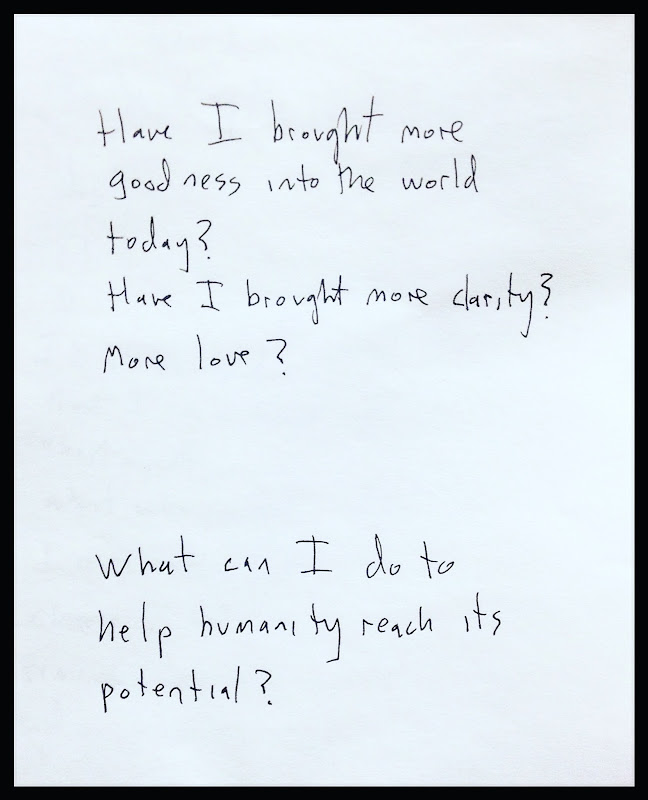 Have I brought more
goodness into the world
today?
Have I brought more clarity?
More love?
What can I do to
help humanity reach its
potential?